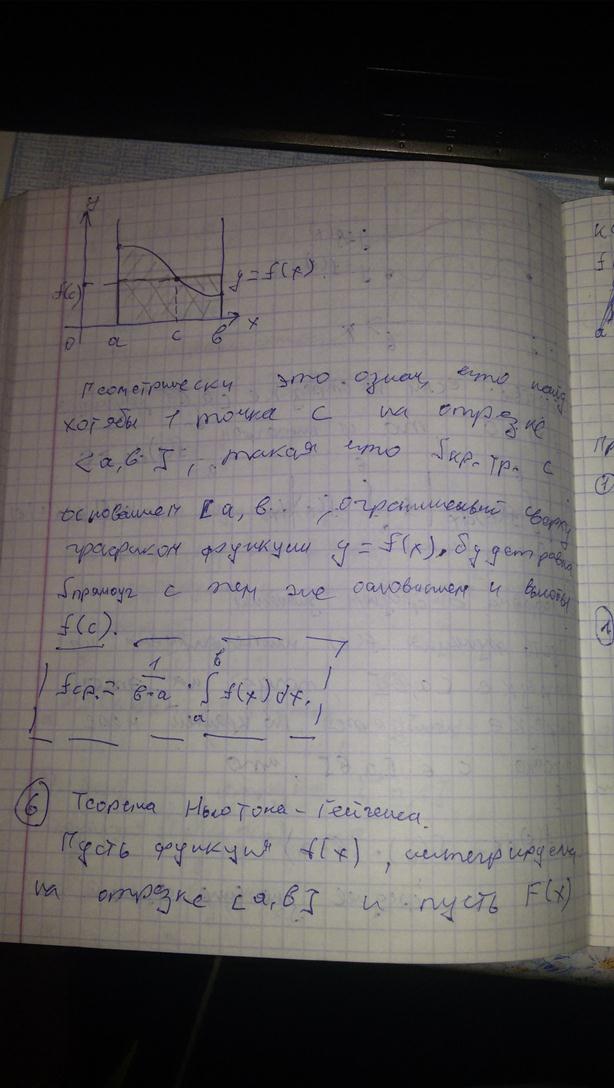 y
f(c)
y = f(x)
0 a c в x
Геометрически это означ, что найд.
хотябы 1 точка С на отрезке
[a, в], такая что Sкр. тр. с
основанием [a, в , ограниченый сверху
графиком функции y = f(x), будет равна
Sпрямоуг с тем же основанием и высоты
f(c).
fср. = 1/в-a · ∫ₐᵇ f(x)dx.
6 Теорема Ньютона-
Пусть функция f(x), интегрируема
на отрезке [a, в] и пусть F(x)